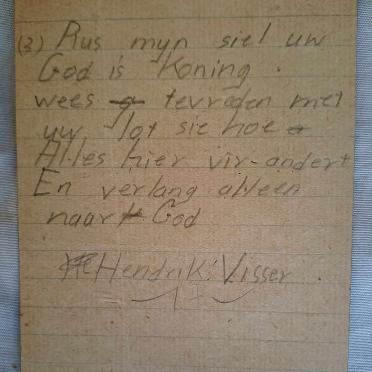 (3) Rus myn siel uw
God is Koning.
wees tevreden met
uw lot sie hoe
Alles hier vir-andert
En verlang alleen
naar God
Hendrik Visser